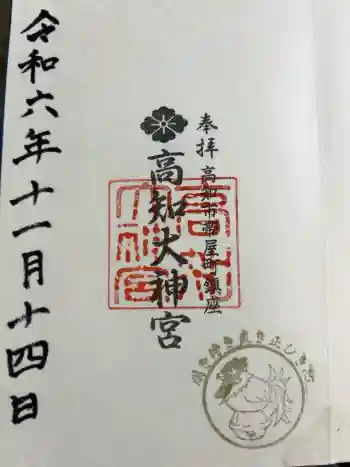 奉拝
高知市帯屋町鎮座
高知大神宮
令和六年十一月十四日